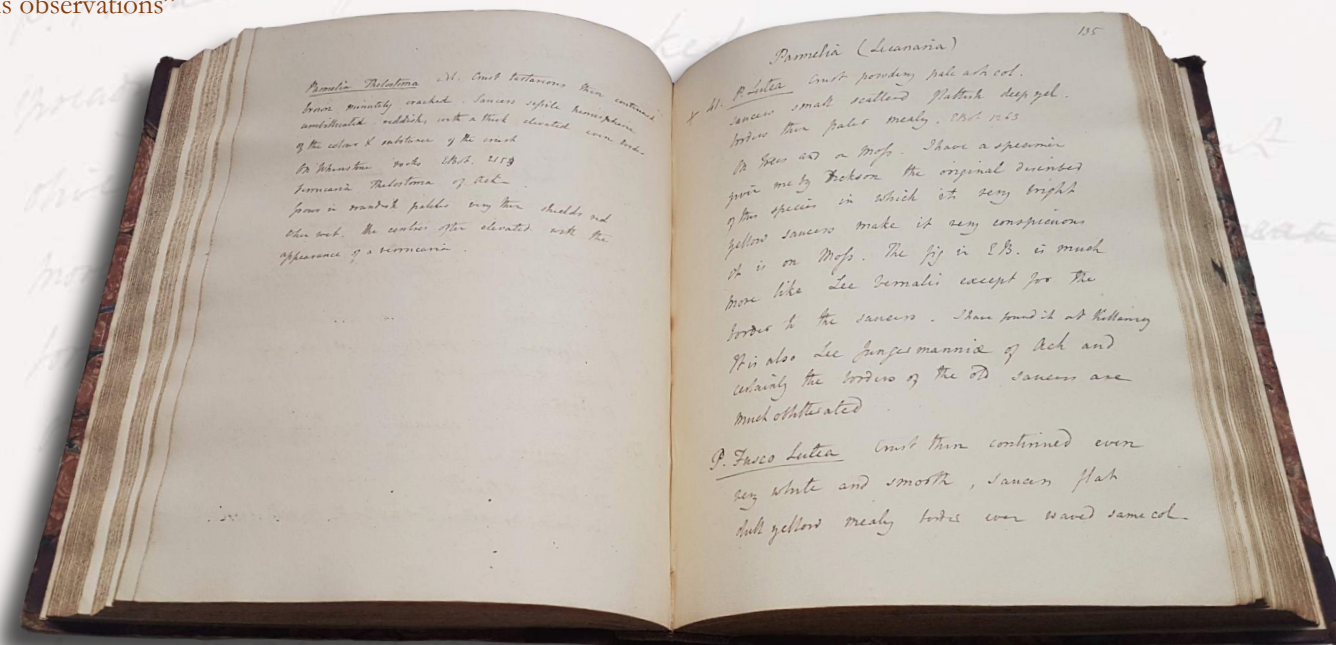 s observations"
Parmelia Thelostoma M. Crust tartareous thin continued
brown minutely cracked. Saucers sessile hemispherical
umbilicated reddish, with a thick elevated even border
of the colour & substance of the crust
On Whinstone rocks EBot. 2153
Verrucaria Thelostoma of Ach
grows in patches very thin shields red
when wet. the centres often elevated with the
appearance of a verrucaria.
135
Parmelia (Lecanaria)
x M. P. Lutea Crust powdery pale ash col.
Saucers small scattered flattish deep yel.
borders thin paler mealy. EBot 1263
On trees and on Moss. I have a specimen
given me by Dickson the original
of this species in which its very bright
yellow saucers make it very conspicuous
it is on Moss. The fig in E.B. is much
more like Lec vernalis except for the
border to the saucers. I have found it at Killarney
It is also Lec Jungermanniæ of Ach and
certainly the borders of the old saucers are
much obliterated
P. Fusco Lutea Crust thin continued even
very white and smooth, saucers flat
dull yellow mealy border even waved same col.